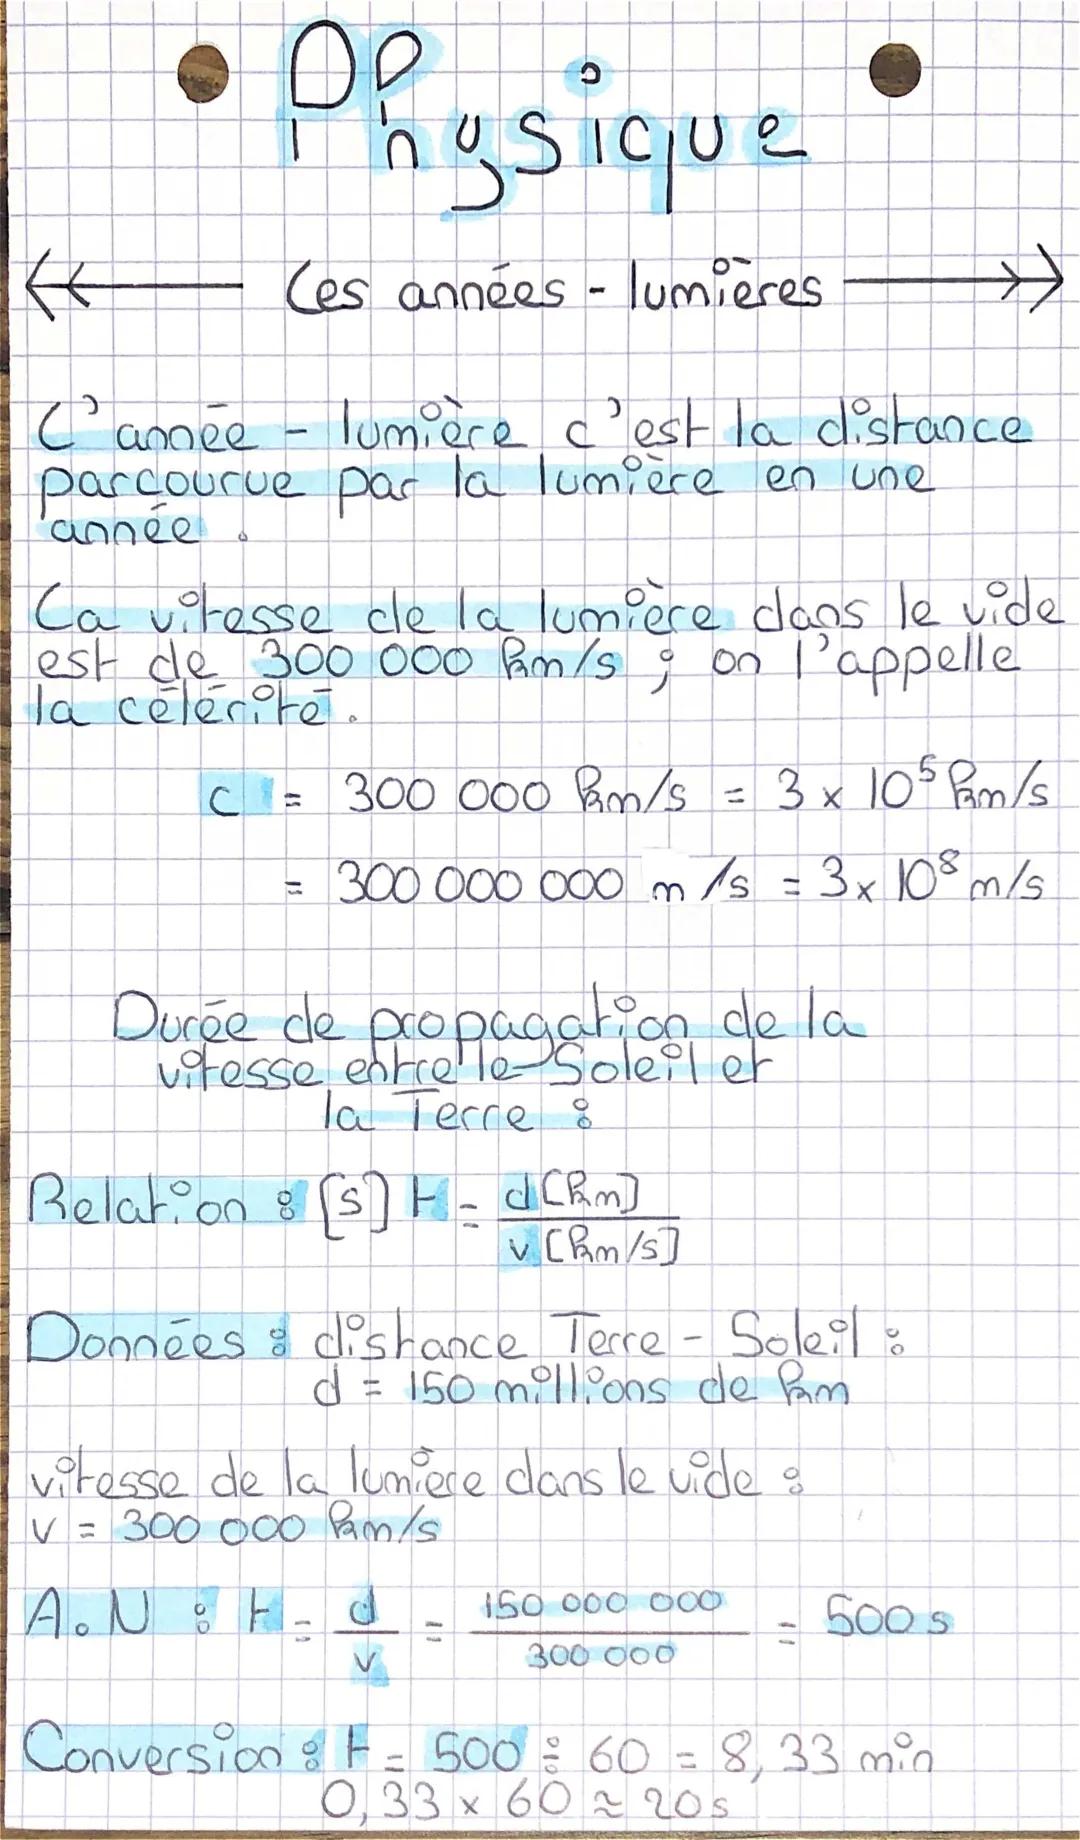 Physique
Les années - lumières
L'année - lumière c'est la distance
parcourue par la lumière en une
année.
La vitesse de la lumière dans le vide
est de 300 000 km/s ; on l'appelle
la célérité.
c = 300 000 km/s = 3 x 10⁵ km/s
= 300 000 000 m/s = 3 x 10⁸ m/s
Durée de propagation de la
vitesse entre le Soleil et
la Terre :
Relation : [s] t = d [km]
v [km/s]
Données : distance Terre - Soleil :
d = 150 millions de km
vitesse de la lumière dans le vide :
v = 300 000 km/s
A.N : t = d/v = 150 000 000/300 000 = 500 s
Conversion : t = 500 ÷ 60 = 8,33 min
0,33 x 60 ≈ 20s